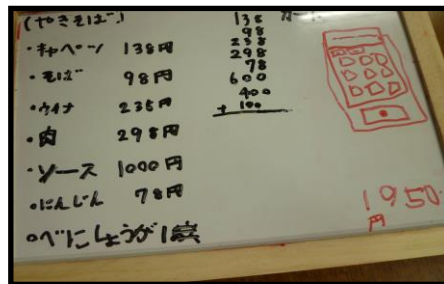 (やきそば)
・キャベツ 138円
・そば 98円
・ウイナ 235円
・肉 298円
・ソース 1000円
・にんじん 78円
・べにしょうが1袋
138
98
238
298
78
600
400
+ 100
1950
円